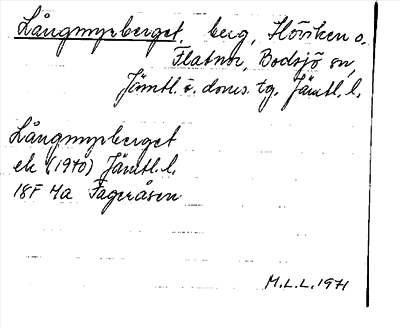 Långmyrberget, berg, Höviken o.
Flatnor, Bodsjö sn,
Jämtl. ö. doms. tg. Jämtl. l.
Långmyrberget
ek (1970) Jämtl. l.
18F 4a Fageråsen
M.L.L. 1971